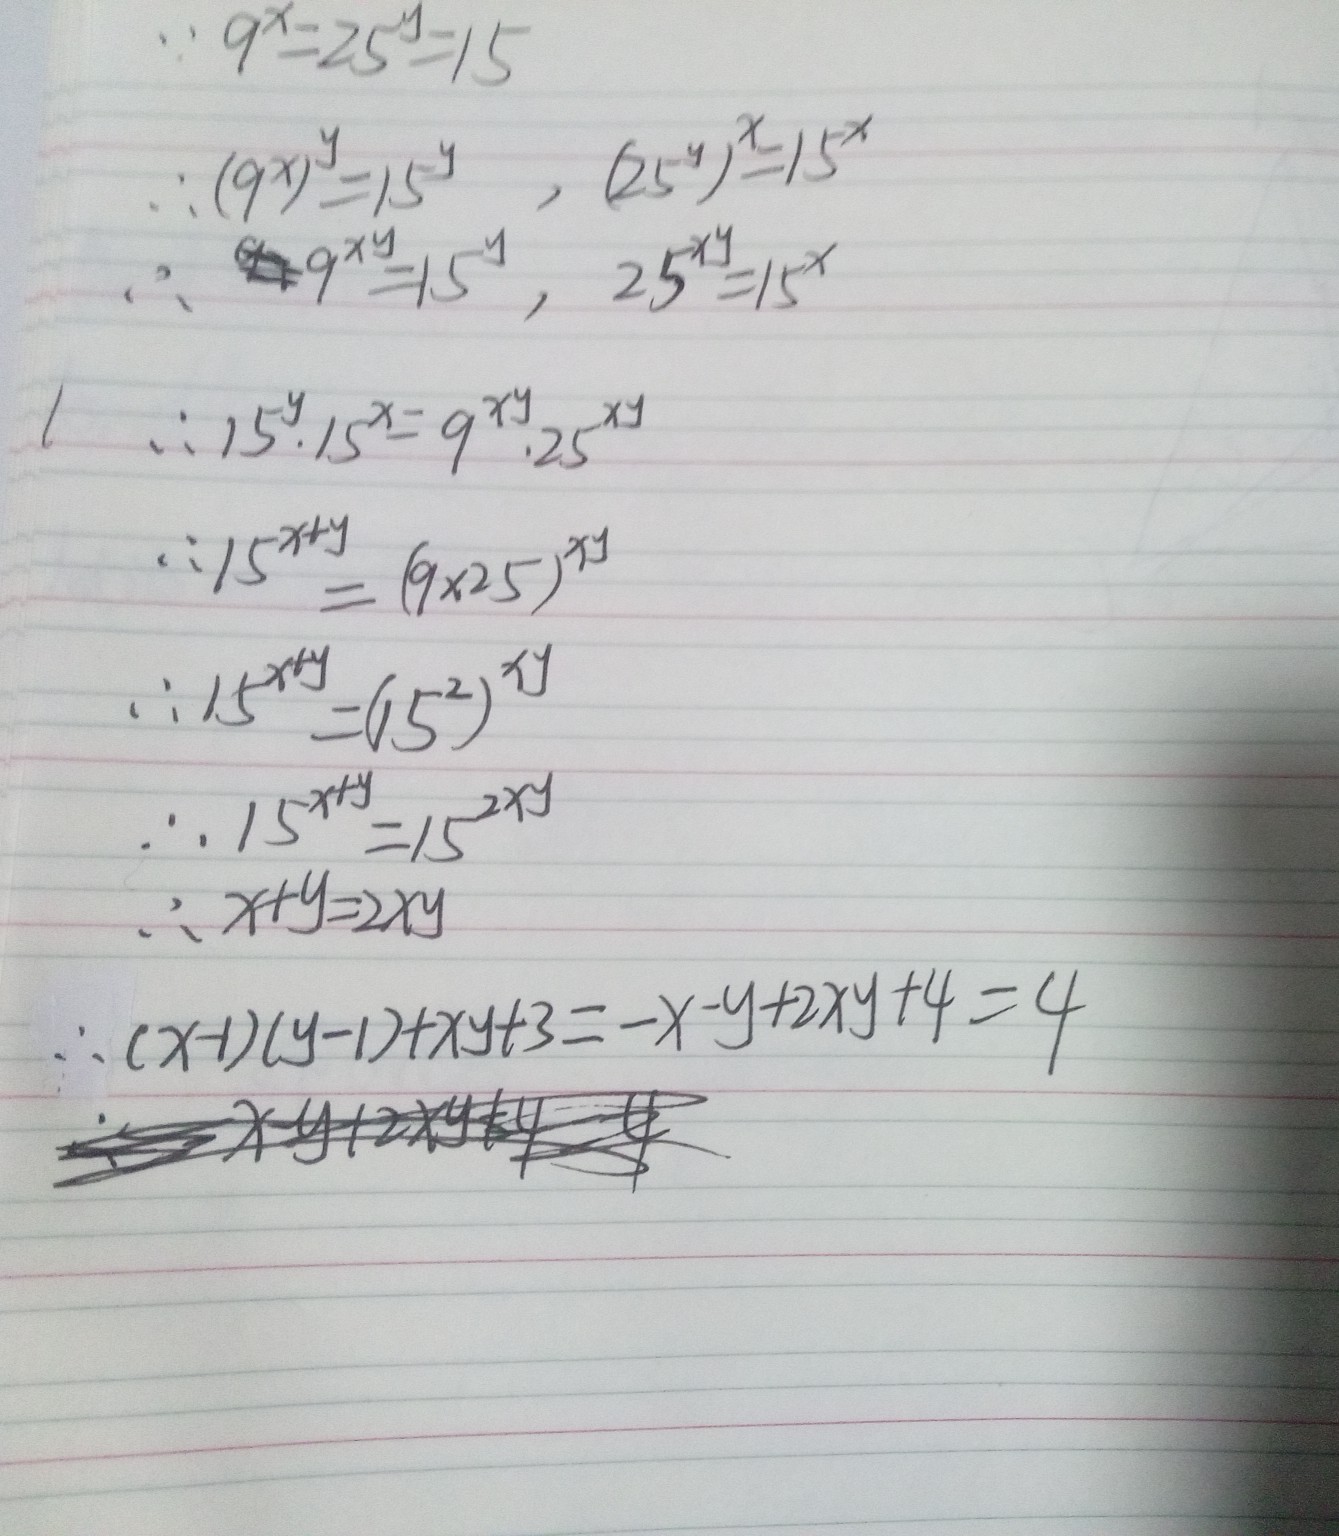 ∵ 9ˣ=25ʸ=15
∴(9ˣ)ʸ=15ʸ , (25ʸ)ˣ=15ˣ
∴ 9ˣʸ=15ʸ, 25ˣʸ=15ˣ
∴15ʸ·15ˣ=9ˣʸ·25ˣʸ
∴15ˣ⁺ʸ=(9×25)ˣʸ
∴15ˣ⁺ʸ=(15²)ˣʸ
∴15ˣ⁺ʸ=15²ˣʸ
∴x+y=2xy
∴(x-1)(y-1)+xy+3=-x-y+2xy+4=4